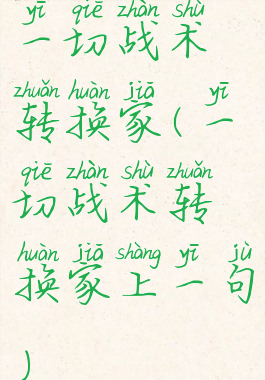 yī qiē zhàn shù
一切战术
zhuǎn huàn jiā yī
转换家(一
qiē zhàn shù zhuǎn
切战术转
huàn jiā shàng yī jù
换家上一句
)